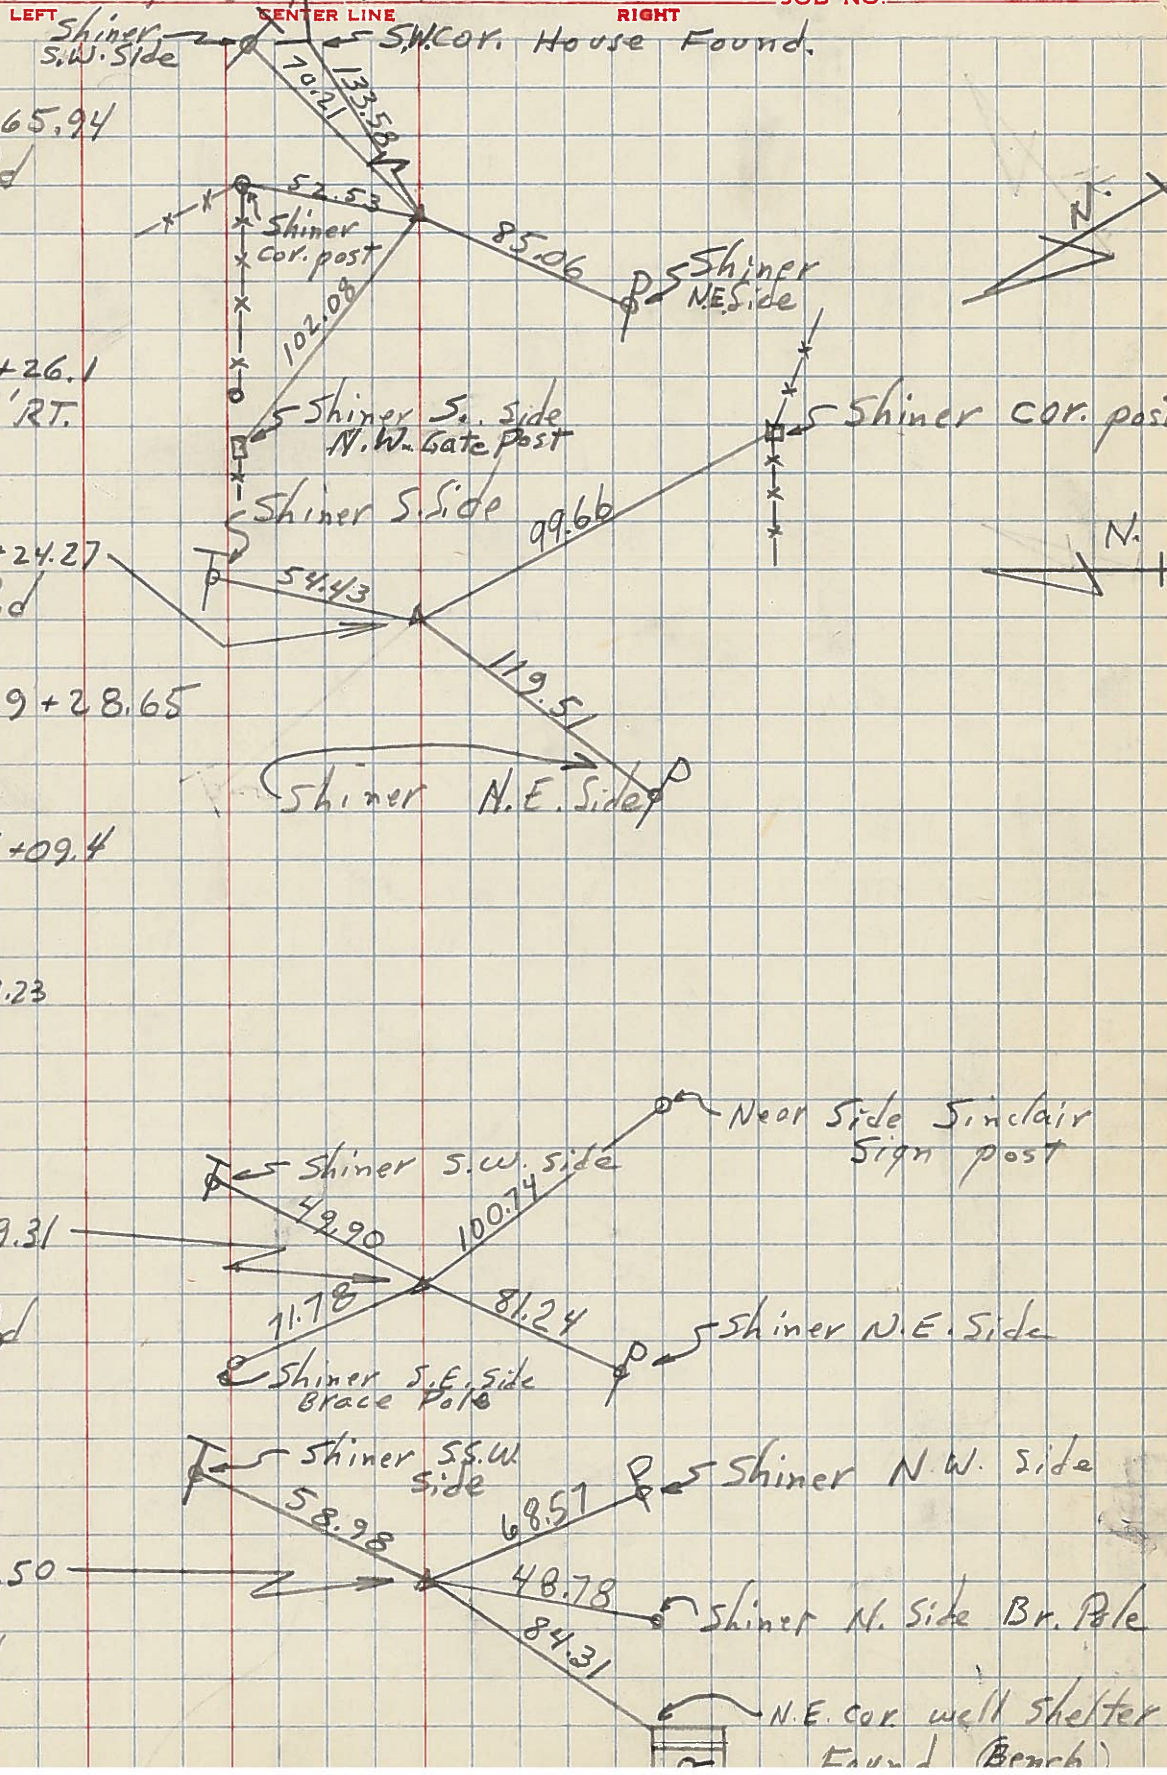 LEFT CENTER LINE RIGHT JOB NO.
Shiner
S.W. Side
S.W. Cor. House Found.
70.21
133.58
65.94
52.53
Shiner
cor. post
85.06
Shiner
N.E. Side
N.
102.08
+26.1
' RT.
Shiner S. Side
N.W. Gate Post
Shiner cor. post
Shiner S. Side
99.66
24.27
54.43
N.
119.51
9+28.65
Shiner N.E. Side
+09.4
.23
Near Side Sinclair
Sign post
Shiner S.W. Side
49.90
100.74
9.31
71.78
81.24
Shiner N.E. Side
Shiner S.E. Side
Brace Pole
Shiner S.S.W.
Side
Shiner N.W. Side
58.98
68.57
.50
48.78
Shiner N. Side Br. Pole
84.31
N.E. cor. well shelter
Found (Bench)